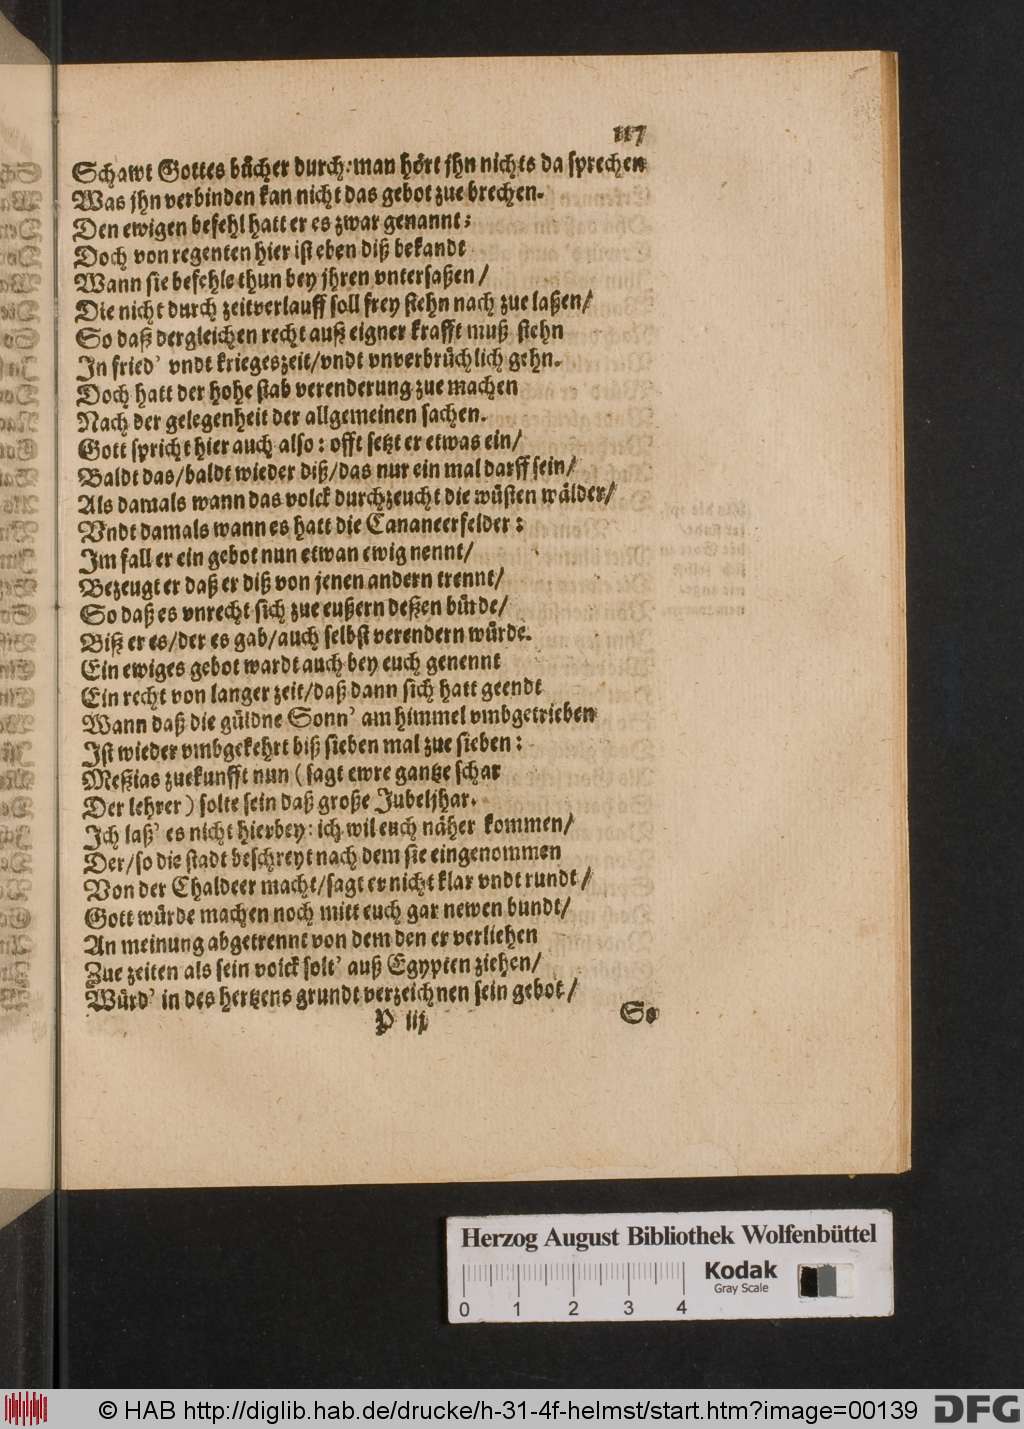 117
Schawt Gottes bücher durch: man hört jhn nichts da sprechen
Was jhn verbinden kan nicht das gebot zue brechen.
Den ewigen befehl hatt er es zwar genannt;
Doch von regenten hier ist eben diß bekandt
Wann sie befehle thun bey jhren vntersaßen /
Die nicht durch zeitverlauff soll frey stehn nach zue laßen/
So daß dergleichen recht auß eigner krafft muß stehn
In fried' vndt krieges zeit/vndt vnverbrüchlich gehn.
Doch hatt der hohe stab verenderung zue machen
Nach der gelegenheit der allgemeinen sachen.
Gott spricht hier auch also: offt setzt er etwas ein/
Baldt das/baldt wieder diß/das nur ein mal darff sein/
Als damals wann das volck durchzeucht die wüsten wälder/
Vndt damals wann es hatt die Cananeerfelder:
Im fall er ein gebot nun etwan ewig nennt/
Bezeugt er daß er diß von jenen andern trennt/
So daß es vnrecht sich zue eußern deßen bürde/
Biß er es/der es gab/auch selbst verendern würde.
Ein ewiges gebot wardt auch bey euch genennt
Ein recht von langer zeit/daß dann sich hatt geendt
Wann daß die güldne Sonn' am himmel vmbgetrieben
Ist wieder vmbgekehrt biß sieben mal zue sieben:
Meßias zuekunfft nun (sagt ewre gantze schar
Der lehrer) solte sein daß große Jubeljhar.
Ich laß' es nicht hierbey: ich wil euch näher kommen/
Der/so die stadt beschreyt nach dem sie eingenommen
Von der Chaldeer macht/sagt er nicht klar vndt rundt/
Gott würde machen noch mitt euch gar newen bundt/
An meinung abgetrennt von dem den er verliehen
Zue zeiten als sein volck solt' auß Egypten ziehen/
Würd' in des hertzens grundt verzeichnen sein gebot/
P iij
So
Herzog August Bibliothek Wolfenbüttel
Kodak
Gray Scale
0 1 2 3 4
© HAB http://diglib.hab.de/drucke/h-31-4f-helmst/start.htm?image=00139
DFG